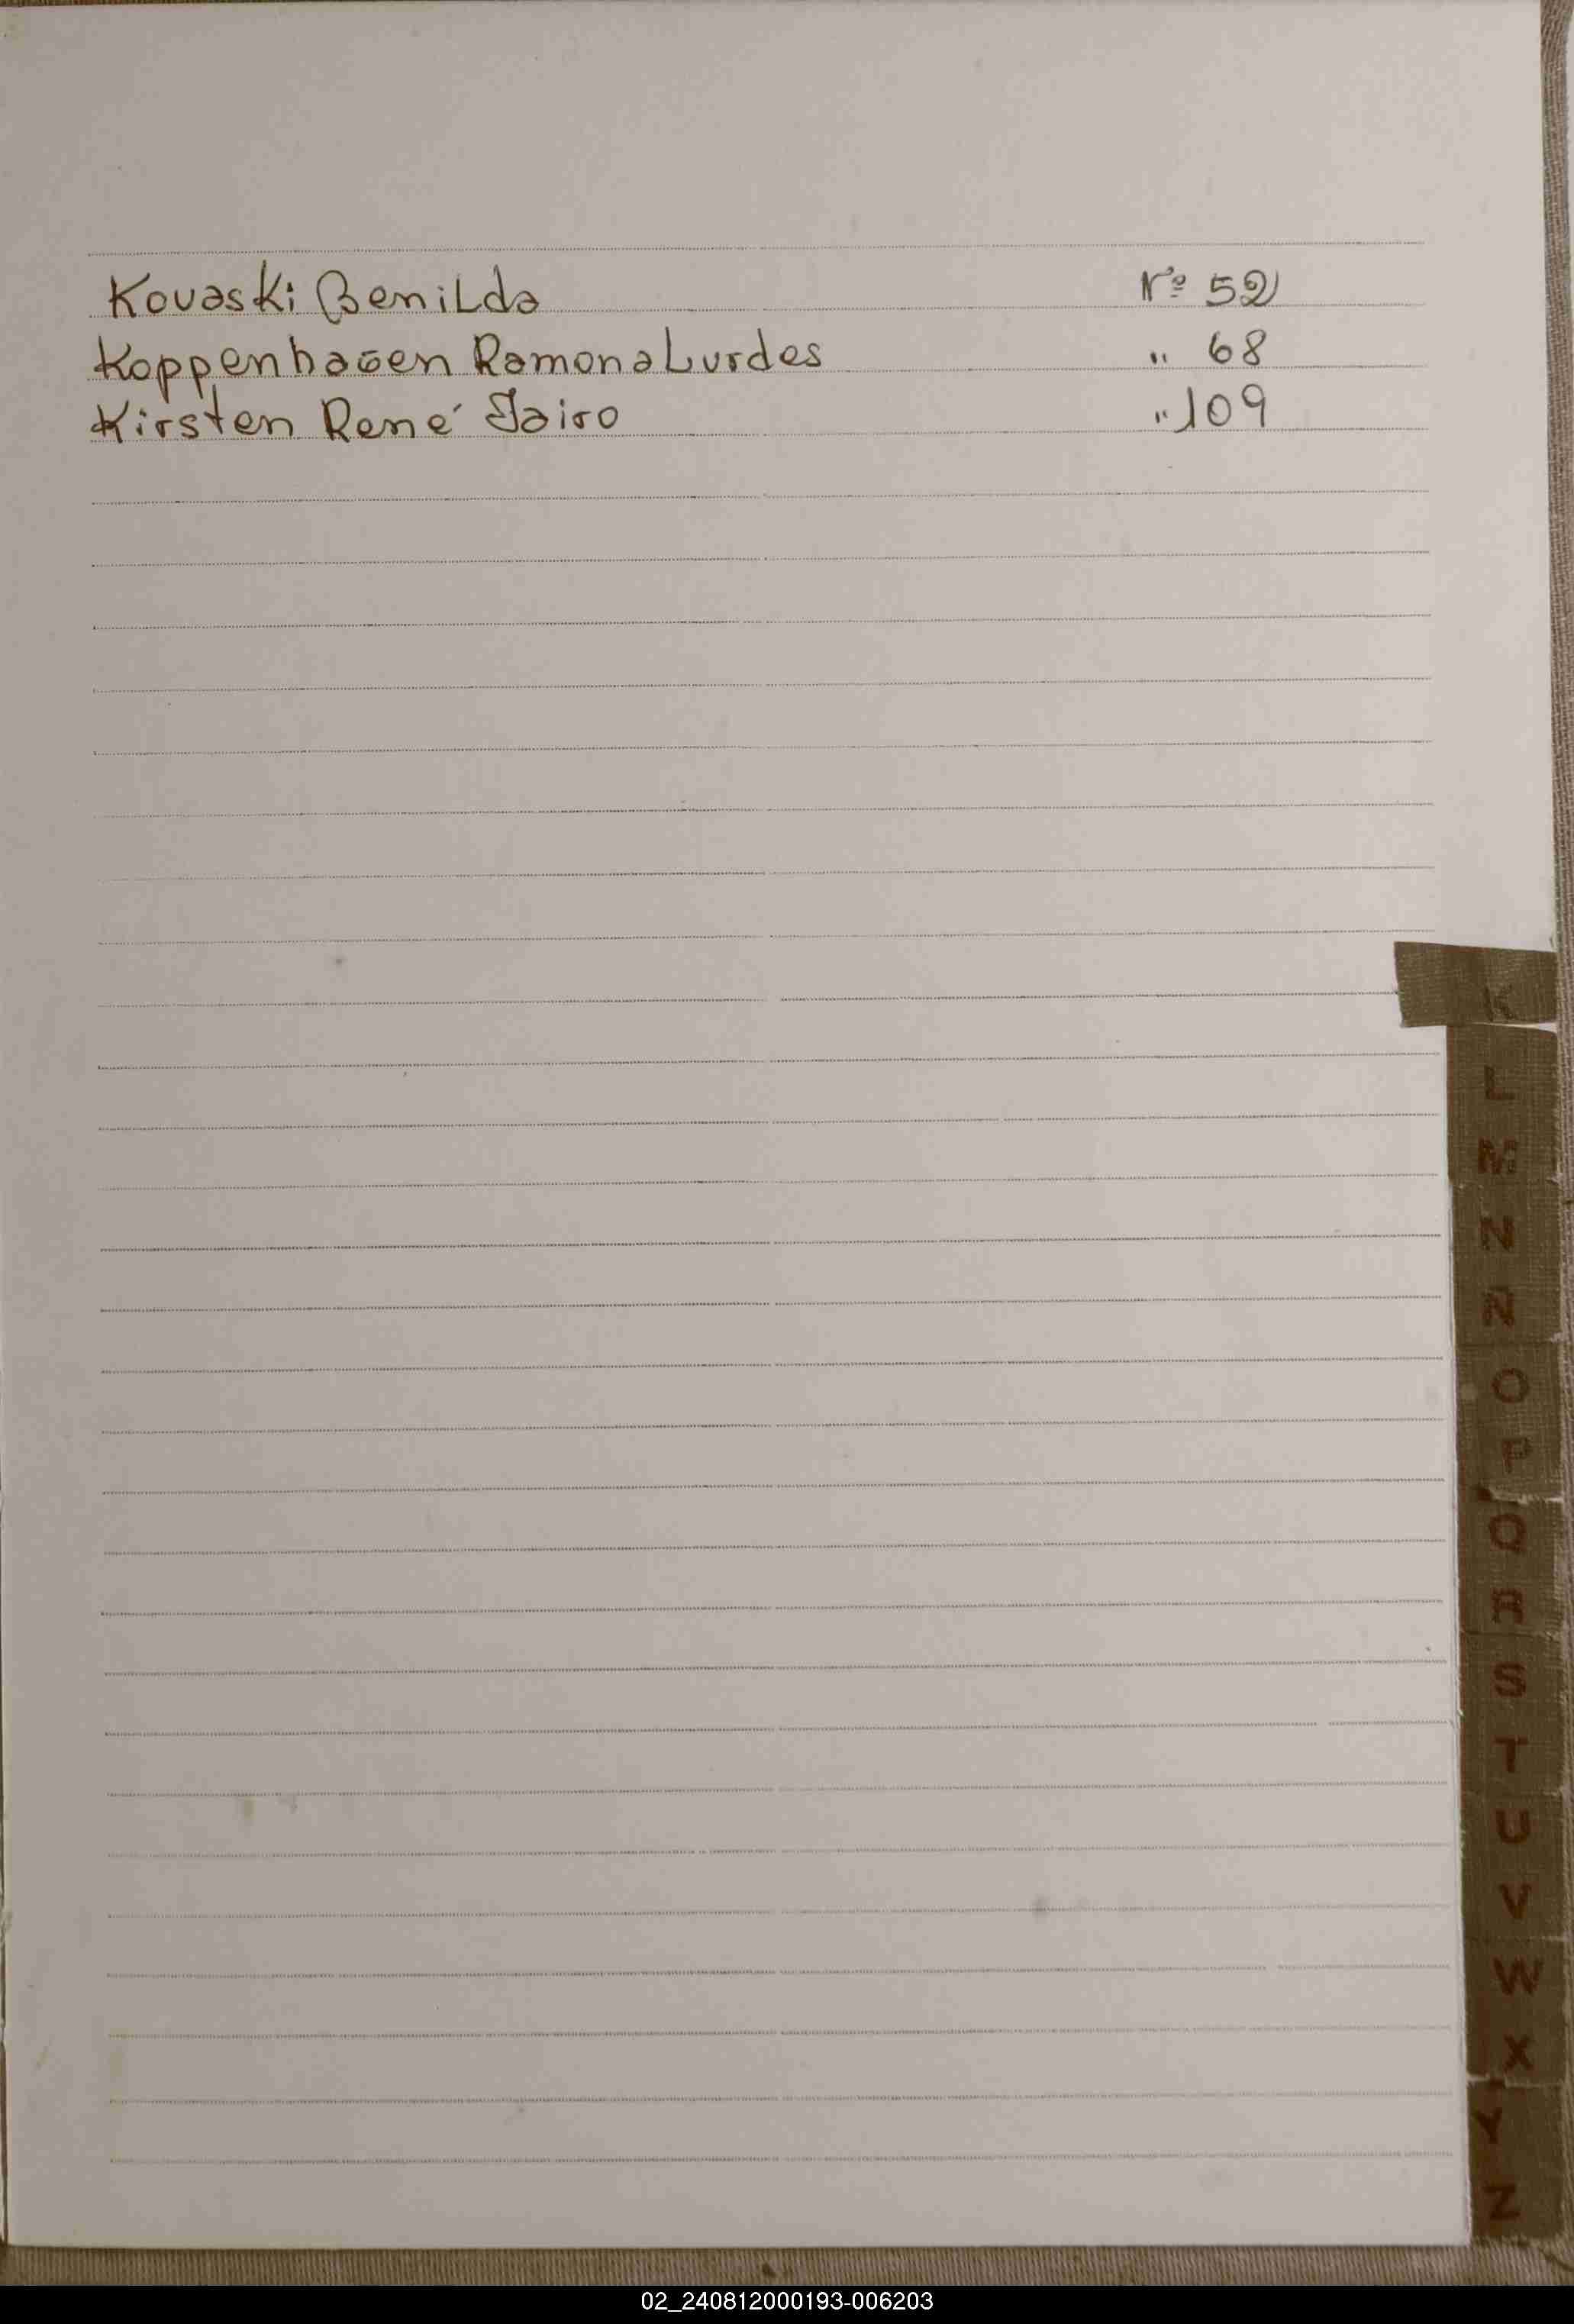 Kovaski Benilda Nº 52
Koppenhagen Ramona Lurdes " 68
Kirsten René Jairo " 109
K
L
M
N
Ñ
O
P
Q
R
S
T
U
V
W
X
Y
Z
02_240812000193-006203